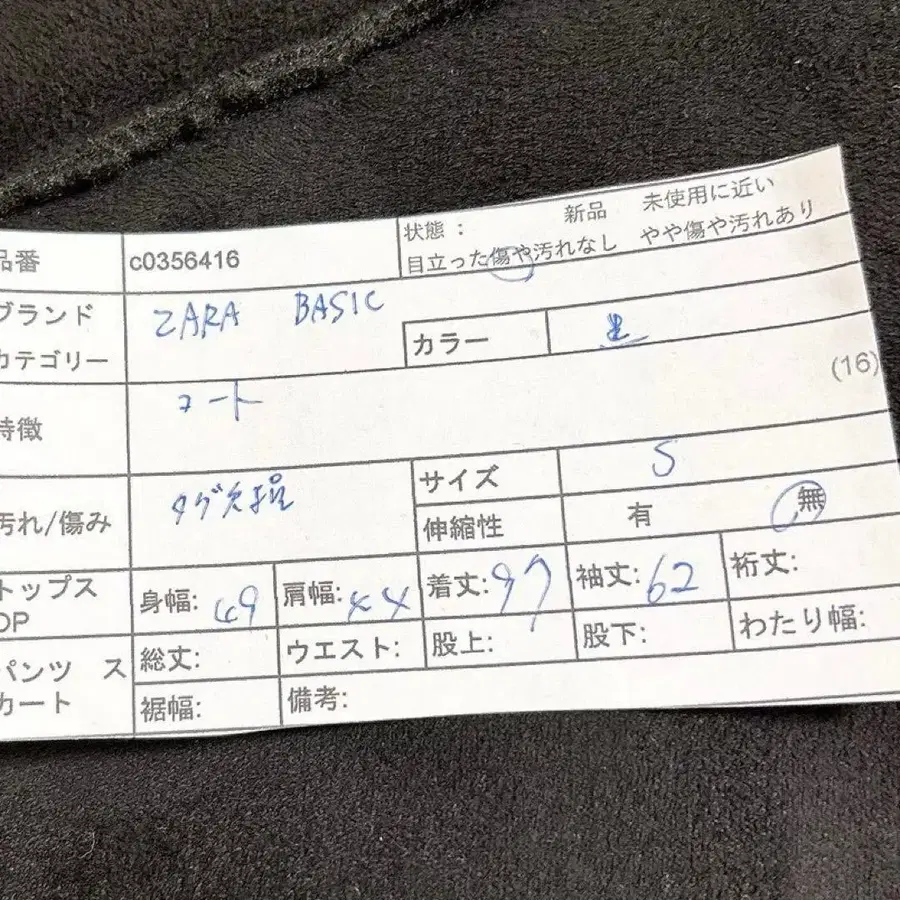 品番 c0356416 状態： 新品 未使用に近い
目立った傷や汚れなし やや傷や汚れあり
ブランド ZARA BASIC
カテゴリー カラー 黒
(16)
特徴 コート
汚れ/傷み タグ欠損 サイズ S
伸縮性 有 無
トップス OP 身幅: 49 肩幅: 44 着丈: 97 袖丈: 62 裄丈:
パンツ スカート 総丈: ウエスト: 股上: 股下: わたり幅:
裾幅: 備考: